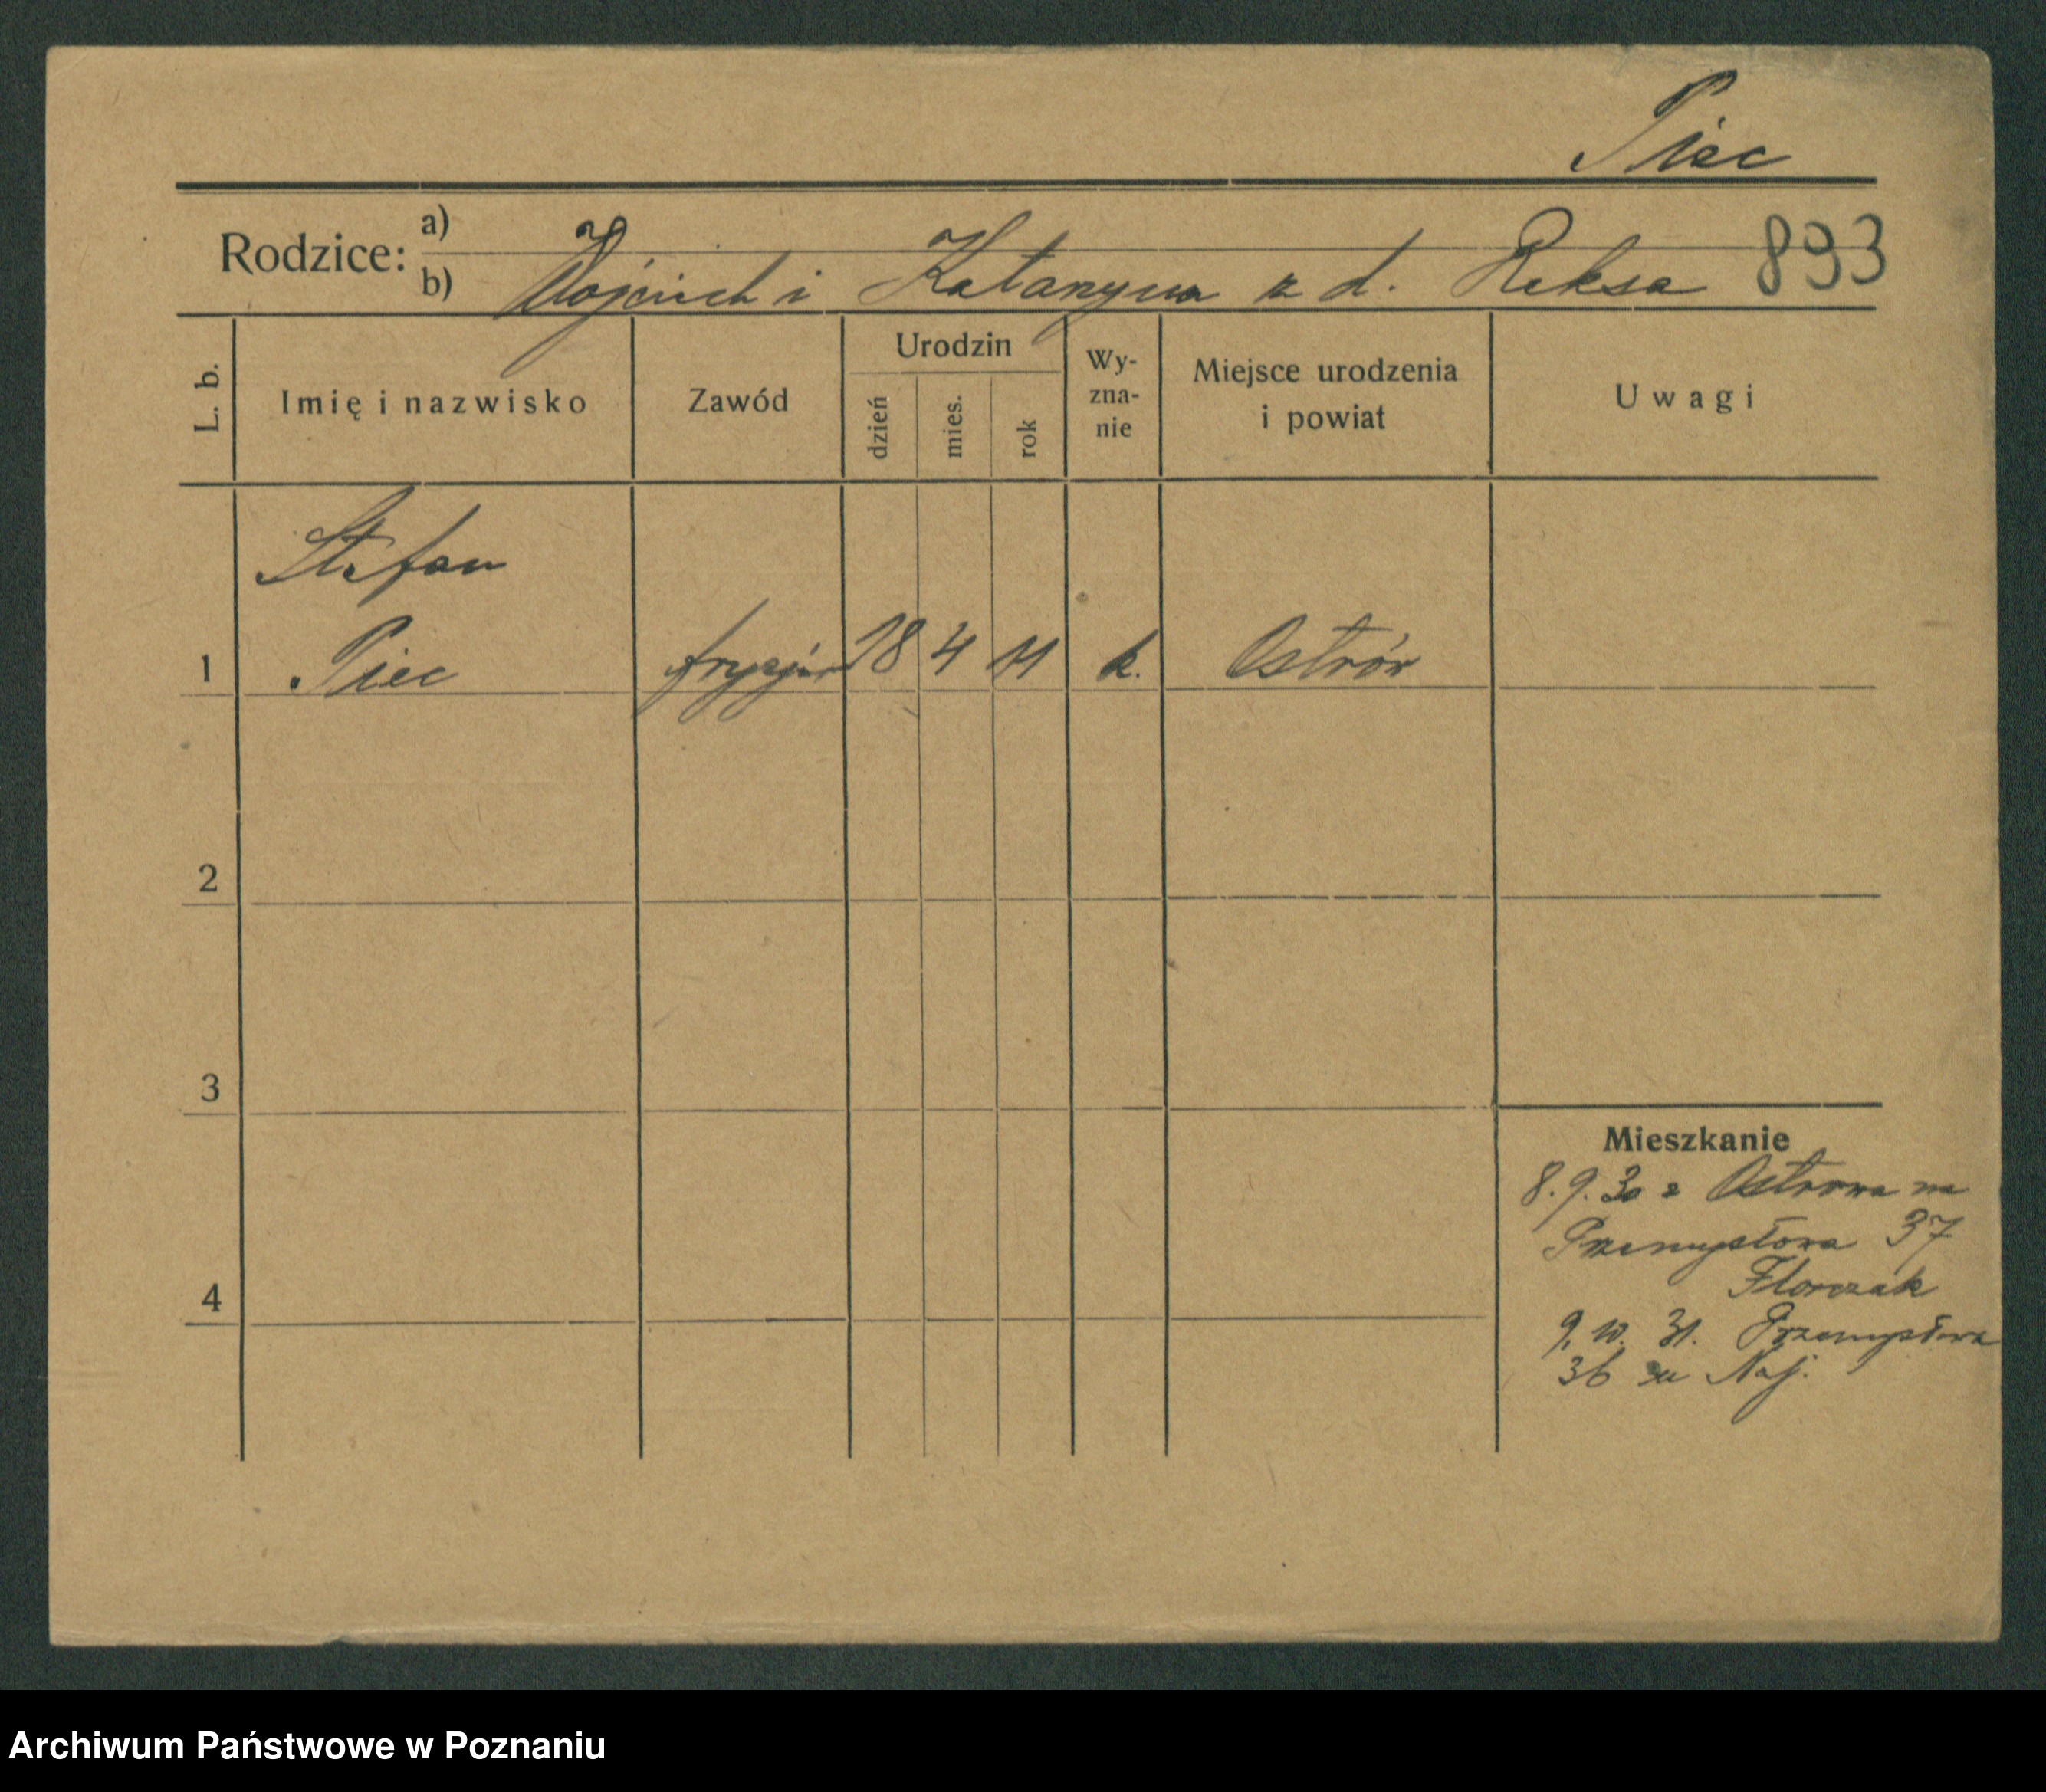 Piec
Rodzice: a)
b) Wojciech i Katarzyna z d. Reksa 893
L. b.
Imię i nazwisko
Zawód
Urodzin
dzień
mies.
rok
Wy-
zna-
nie
Miejsce urodzenia
i powiat
Uwagi
Stefan
1 Piec fryzjer 18 4 11 k. Ostrów
2
3
4
Mieszkanie
8.9.30 z Ostrowa na
Przemysłowa 37
Florczak
9.10.31. Przemysłowa
36 Naj.
Archiwum Państwowe w Poznaniu